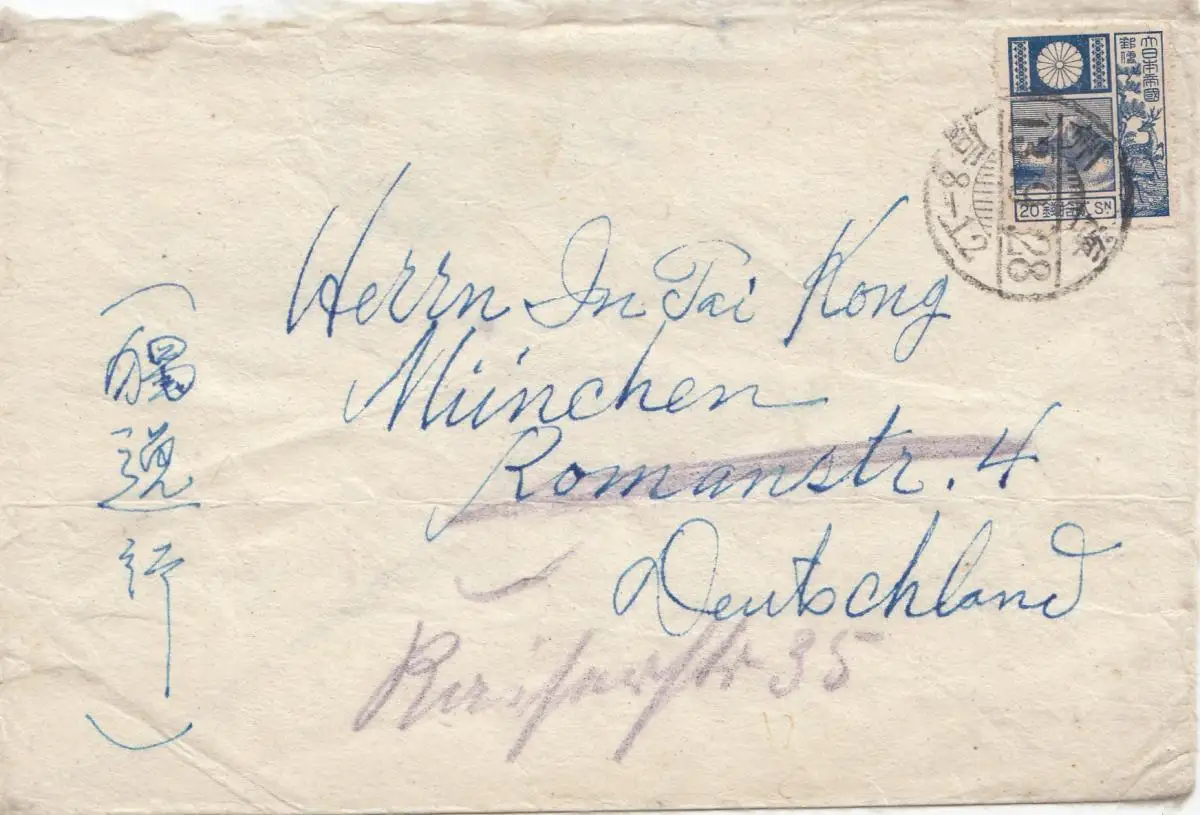 大日本帝國
郵便
20
SN
28
8-12
Herrn In Tai Kong
München
Romanstr. 4
Deutschland
Kaiserstr 35
(獨逸行)